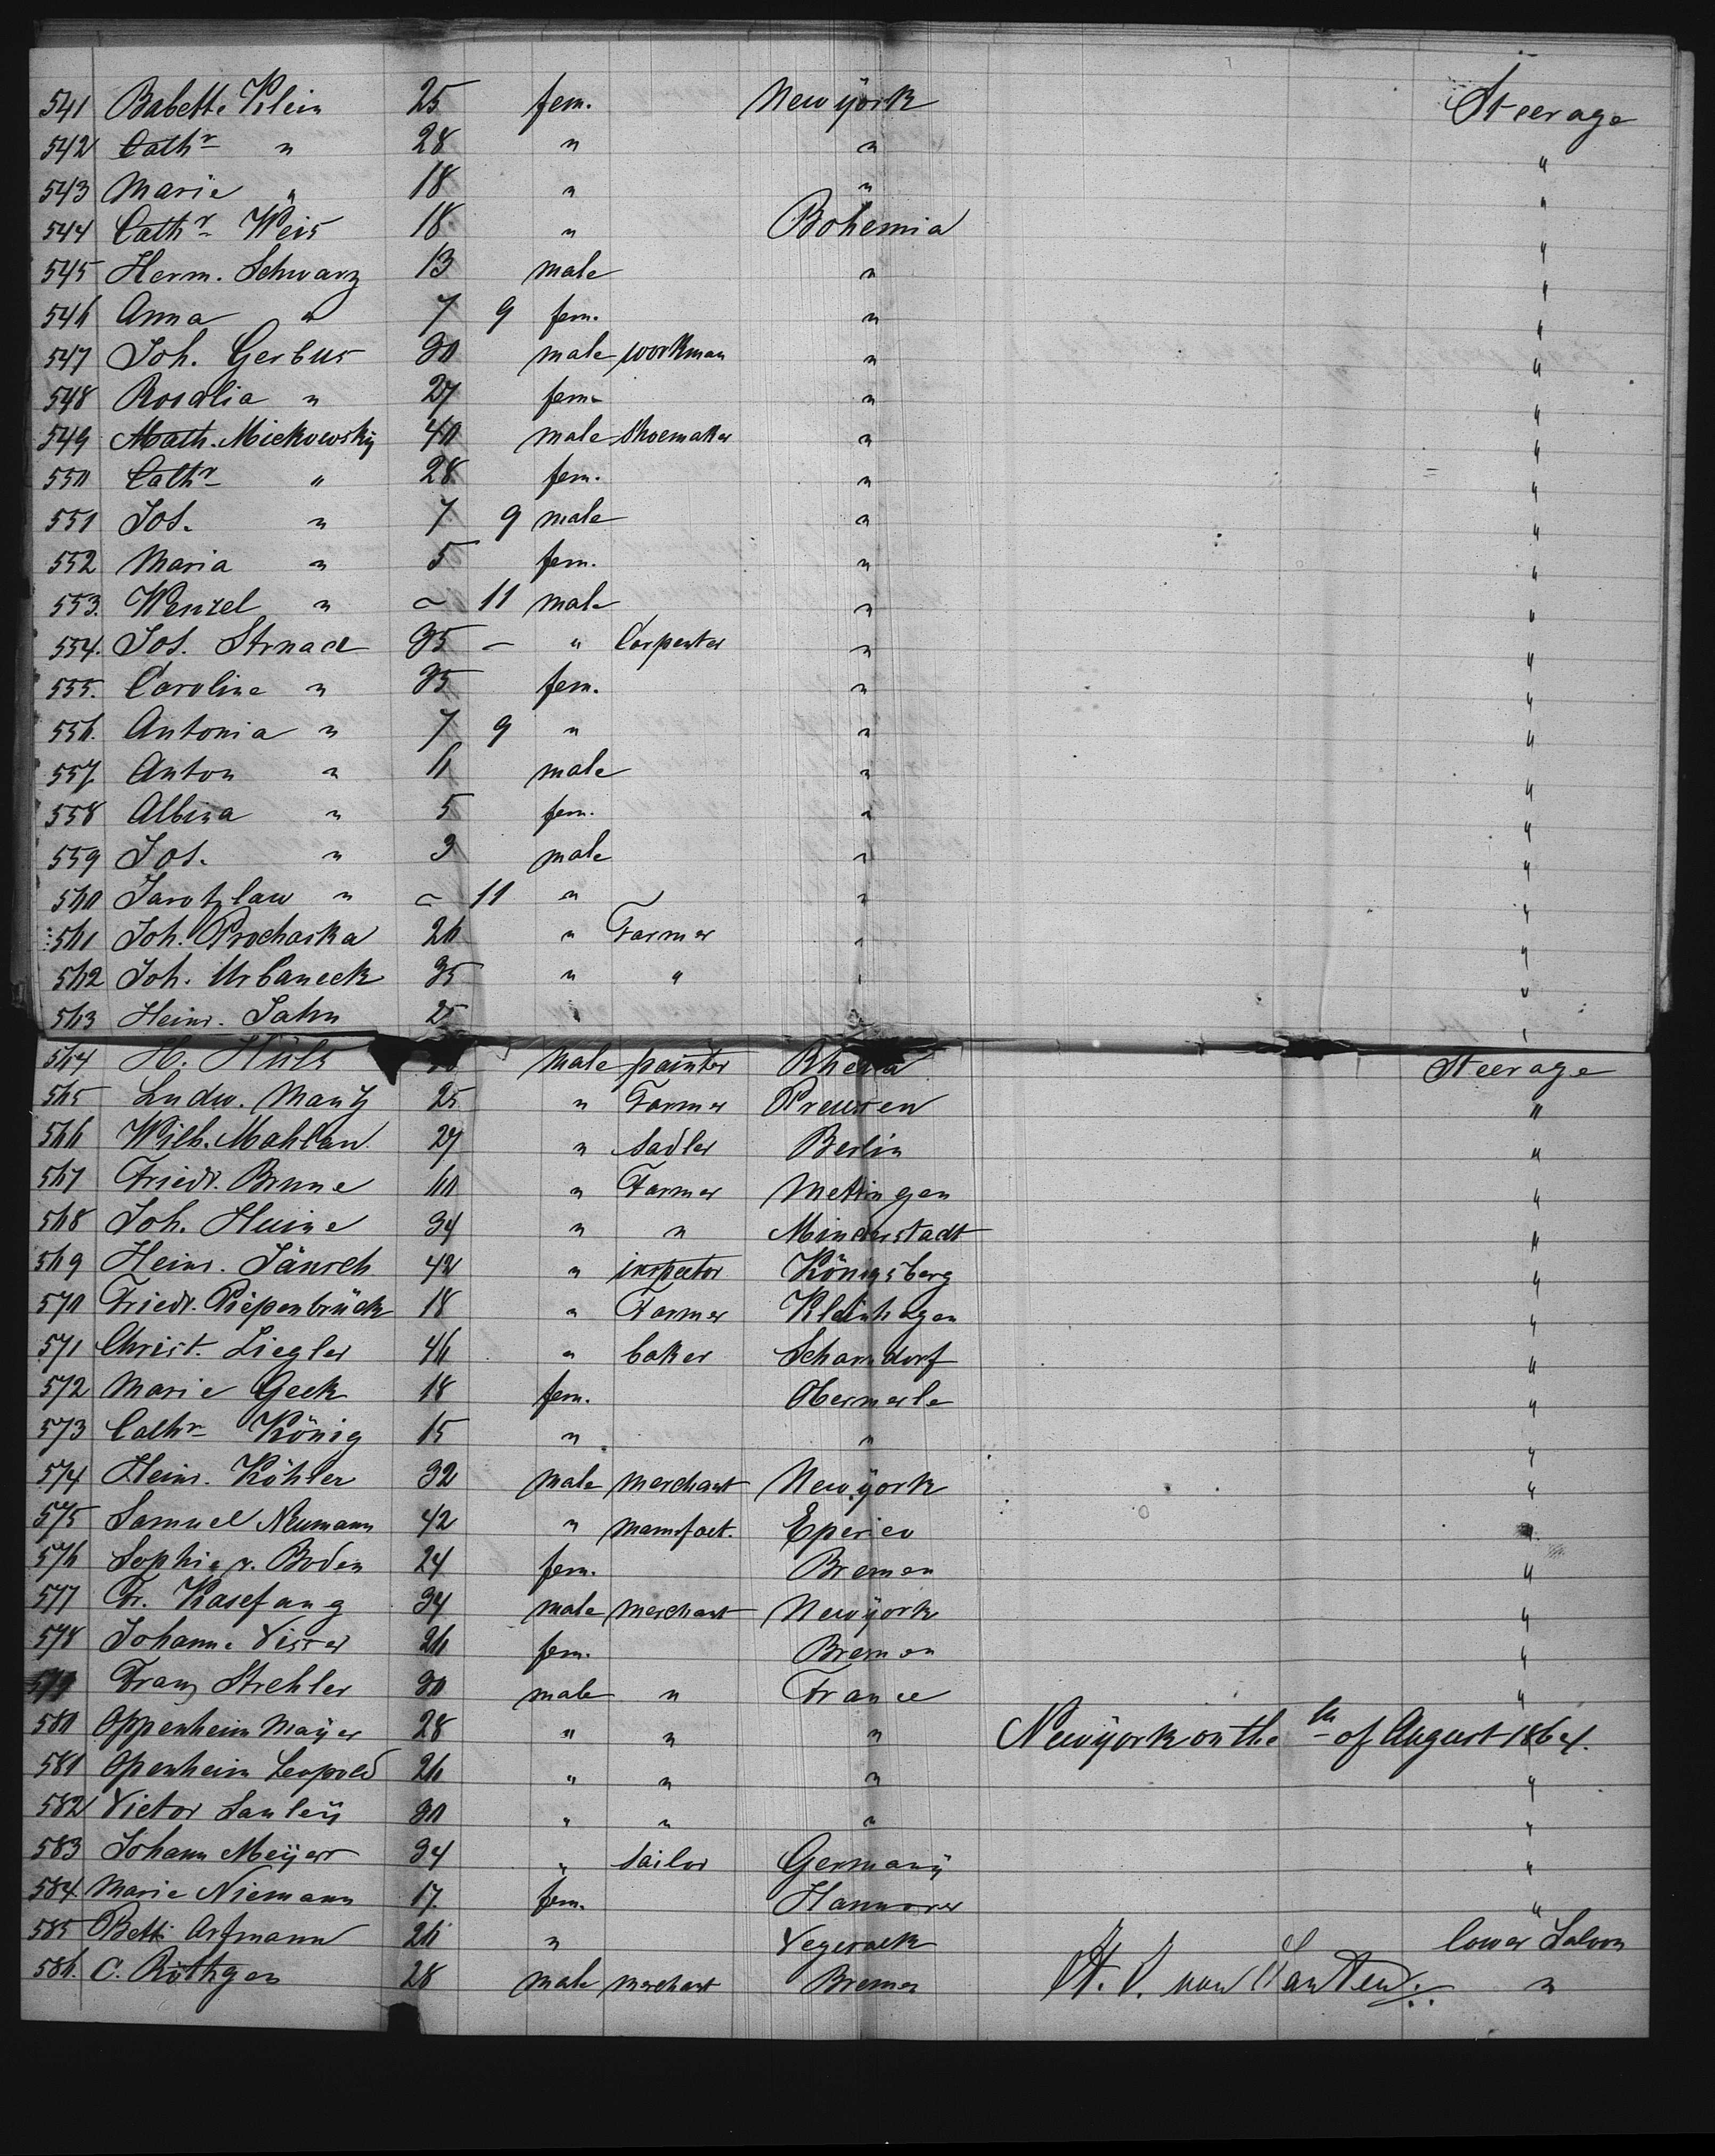 541 Babette Klein 25 fem. New york Steerage
542 Cathr " 28 " " "
543 Marie " 18 " " "
544 Cathr Weis 18 " Bohemia "
545 Herm. Schwarz 13 male " "
546 Anna " 7 9 fem. " "
547 Joh. Gerbus 30 male workman " "
548 Rosalia " 27 fem. " "
549 Math. Mickowsky 40 male Shoemaker " "
550 Cathr " 28 fem. " "
551 Jos. " 7 9 male " "
552 Maria " 5 fem. " "
553. Wenzel " – 11 male " "
554. Jos. Strnad 35 – " Carpenter " "
555. Caroline " 35 fem. " "
556. Antonia " 7 9 " " "
557. Anton " 6 male " "
558 Albina " 5 fem. " "
559 Jos. " 3 male " "
560 Jarotzlaw " – 11 " " "
561 Joh. Prochaska 26 " Farmer " "
562 Joh. Urbaneck 35 " " " "
563 Heinr. Jahn 25 " "
564 H. Hüls male painter Steerage
565 Ludw. Manz 25 " Farmer Preussen "
566 Wilh. Mahlau 27 " Sadler Berlin "
567 Friedr. Brune 60 " Farmer Mettingen "
568 Joh. Huine 34 " " Minderstadt "
569 Heinr. Jänsch 42 " inspector Königsberg "
570 Friedr. Piepenbrück 18 " Farmer Kleinhagen "
571 Christ. Ziegler 46 " baker Schorndorf "
572 Marie Geck 18 fem. Obermerle "
573 Cathr König 15 " " "
574 Heinr. Köhler 32 male merchant New york "
575 Samuel Neumann 42 " manufact. "
576 Sophie v. Boden 24 fem. Bremen "
577 Fr. Kasefang 34 male merchant New york "
578 Johanne Visser 26 fem. Bremen "
579 Franz Strehler 30 male " France "
580 Oppenheim Mayer 28 " " " Newyork on the th of August 1864. "
581 Openheim Leopold 26 " " " "
582 Victor Sanley 30 " " " "
583 Johann Meyer 34 " Sailor Germany "
584. Marie Niemann 17. fem. Hannover "
585 Betti Arfmann 26 " Vegesack lower Saloon
586. C. Röthgen 28 male merchant Bremen H. J. von Santen. "